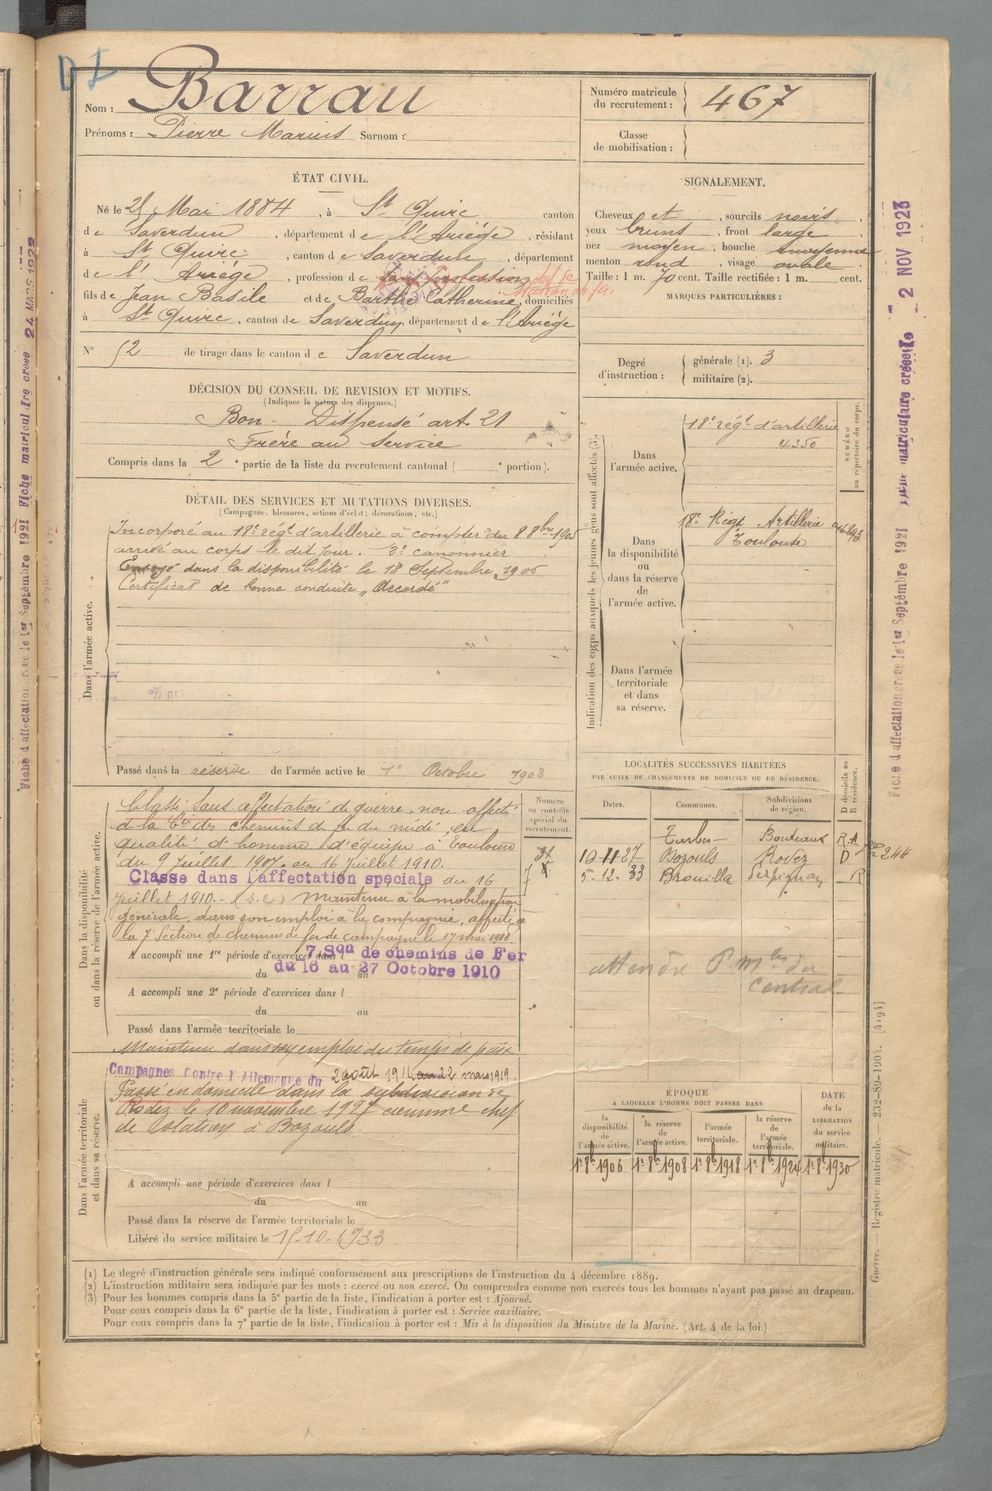 D I
Nom : Barrau
Prénoms : Pierre Marius Surnom :
Numéro matricule du recrutement : 467
Classe de mobilisation :
ÉTAT CIVIL.
Né le 21 Mai 1884, à St Quirc canton
de Saverdun, département de l'Ariège, résidant
à St Quirc, canton de Saverdun, département
de l'Ariège, profession de sans profession chef de station ch. de fer.
fils de Jean Basile et de Barthe Catherine, domiciliés
à St Quirc, canton de Saverdun, département de l'Ariège
N° 52 de tirage dans le canton de Saverdun
SIGNALEMENT.
Cheveux et, sourcils noirs
yeux bruns, front large
nez moyen, bouche moyenne
menton rond, visage ovale
Taille : 1 m. 70 cent. Taille rectifiée : 1 m. cent.
MARQUES PARTICULIÈRES :
Degré d'instruction : générale (1). 3
militaire (2).
DÉCISION DU CONSEIL DE REVISION ET MOTIFS.
(Indiquer la nature des dispenses.)
Bon - Dispensé art. 21
Frère au service
Compris dans la 2e partie de la liste du recrutement cantonal ( e portion).
DÉTAIL DES SERVICES ET MUTATIONS DIVERSES.
(Campagnes, blessures, actions d'éclat, décorations, etc.)
Dans l'armée active.
Incorporé au 18e régt d'artillerie à compter du 8 8bre 1905
arrivé au corps le dit jour. 2e canonnier
Envoyé dans la disponibilité le 18 Septembre 1906
Certificat de bonne conduite „ Accordé"
Passé dans la réserve de l'armée active le 1er Octobre 1908
Indication des corps auxquels les jeunes gens sont affectés (3).
NUMÉRO au répertoire du corps.
Dans l'armée active.
18e régt d'artillerie
4350
Dans la disponibilité ou dans la réserve de l'armée active.
18e Régt Artillerie
Toulouse
Dans l'armée territoriale et dans sa réserve.
Dans la disponibilité ou dans la réserve de l'armée active.
Numéro au contrôle spécial du recrutement.
Classé sans affectation de guerre, non affecté
à la Cie des chemins de fer du midi, en
qualité d'homme d'équipe à Toulouse
du 9 Juillet 1907 au 16 Juillet 1910.
Classé dans l'affectation spéciale du 16
Juillet 1910. (s.c) Maintenu à la mobilisation
générale, dans son emploi à la compagnie, affecté à
la 7e Section de chemins de fer de campagne le 17 mai 1918.
A accompli une 1re période d'exercices dans l 7e Son de chemins de Fer
du 16 au 27 Octobre 1910
A accompli une 2e période d'exercices dans l
du au
Passé dans l'armée territoriale le
Maintenu dans son emploi du temps de paix
Dans l'armée territoriale et dans sa réserve.
Campagnes Contre l'Allemagne du 2 août 1914 au 22 mars 1919.
Passé en domicile dans la subdivision de
Rodez le 10 novembre 1927 comme chef
de station à Bozouls.
A accompli une période d'exercices dans l
du au
Passé dans la réserve de l'armée territoriale le
Libéré du service militaire le 15-10-1933
LOCALITÉS SUCCESSIVES HABITÉES
PAR SUITE DE CHANGEMENTS DE DOMICILE OU DE RÉSIDENCE.
Dates. Communes. Subdivisions de région. D domicile ou R résidence.
Tarbes Bordeaux R
10-11-27 Bozouls Rodez D
5-12-33 Brouilla Perpignan R
attendre P. mles du
Central
ÉPOQUE
A LAQUELLE L'HOMME DOIT PASSER DANS
la disponibilité de l'armée active. la réserve de l'armée active. l'armée territoriale. la réserve de l'armée territoriale. DATE de la LIBÉRATION du service militaire.
1er 8b 1906 1er 8b 1908 1er 8b 1918 1er 8b 1924 1er 8b 1930
(1) Le degré d'instruction générale sera indiqué conformément aux prescriptions de l'instruction du 4 décembre 1889.
(2) L'instruction militaire sera indiquée par les mots : exercé ou non exercé. On comprendra comme non exercés tous les hommes n'ayant pas passé au drapeau.
(3) Pour les hommes compris dans la 5e partie de la liste, l'indication à porter est : Ajourné.
Pour ceux compris dans la 6e partie de la liste, l'indication à porter est : Service auxiliaire.
Pour ceux compris dans la 7e partie de la liste, l'indication à porter est : Mis à la disposition du Ministre de la Marine. (Art. 4 de la loi.)
Guerre. — Registre matricule. — 232-89-1904. [4194]
Fiche d'affectation créée le 1er Septembre 1921 Fiche matriculaire créée 2 NOV 1923
Fiche d'affectation créée le 1er Septembre 1921 Fiche matriculaire créée 24 MARS 1922